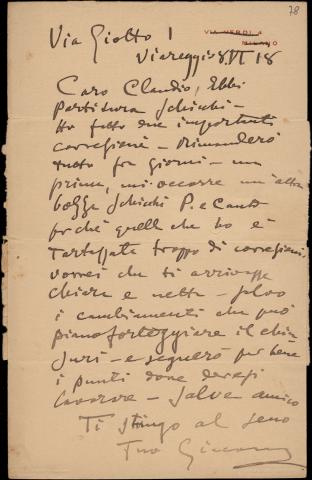 78
VIA VERDI 4
MILANO
Via Giotto 1
Viareggio 8 VI 18
Caro Claudio, Ebbi
Partitura Schicchi –
Ho fatto due importanti
correzioni – Rimanderò
tutto fra giorni – ma
prima, mi occorre un'altra
bozze Schicchi P. e Canto
perché quelle che ho è
tartassate troppo di correzioni.
vorrei che ti arrivasse
chiare e nette – salvo
i cambiamenti che può
pianoforteggiare il
– e segnerò per bene
i punti dove devesi
lavorare – Salve amico
Ti stringo al seno
Tuo Giacomo